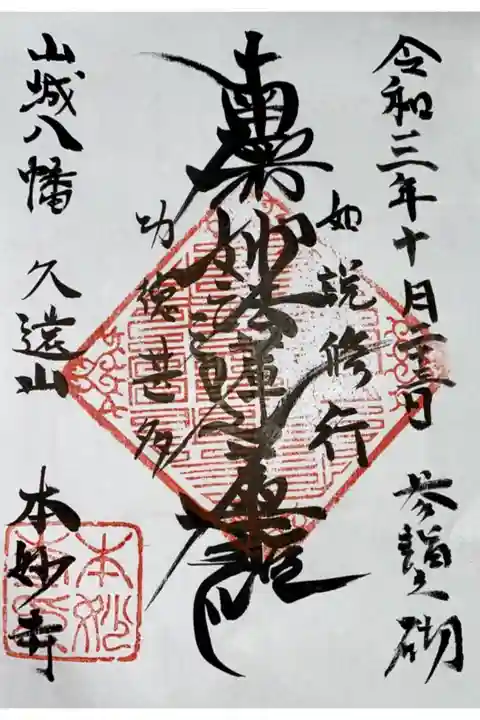 令和三年十月二十三日 参詣之砌
如説修行
南無妙法蓮華経
功徳甚多
山城八幡 久遠山 本妙寺
本妙